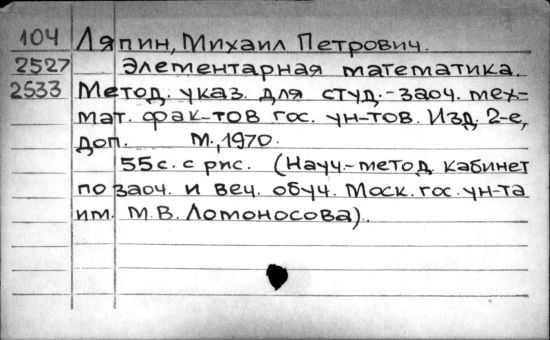 104 Ляпин, Михаил Петрович.
2527 Элементарная математика.
2533 Метод. указ. для студ.-заоч. мех-
мат. фак-тов гос. ун-тов. Изд. 2-е,
доп. М., 1970.
55 с. с рис. (Науч.-метод. кабинет
по заоч. и веч. обуч. Моск. гос. ун-та
им. М.В. Ломоносова).